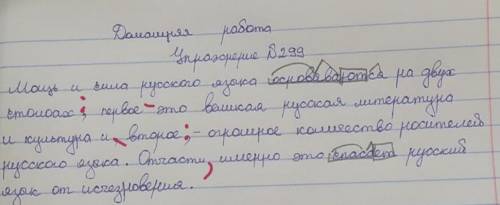 Домашняя работа
Упражнение №299
Мощь и сила русского языка основываются на двух
столпах; первое - это великая русская литература
и культура и, второе; - огромное количество носителей
русского языка. Отчасти, именно это спасает русский
язык от исчезновения.